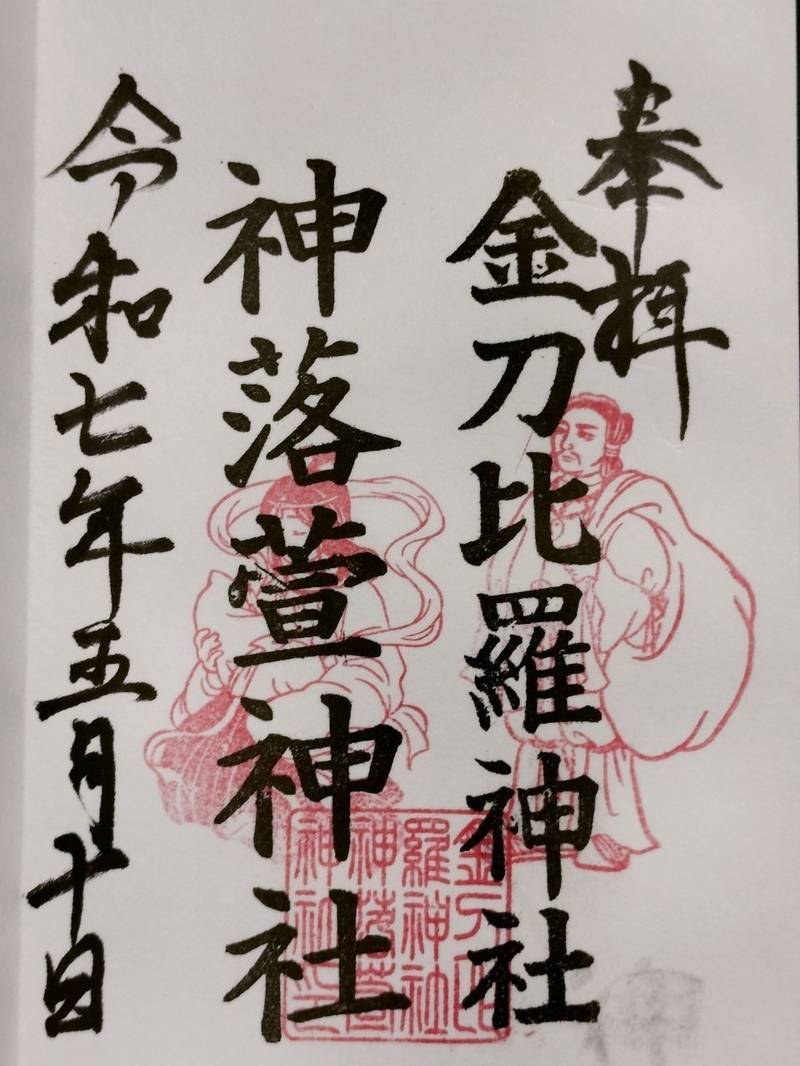 奉拝
金刀比羅神社
神落萱神社
令和七年五月十日
金刀比
羅神社
神落萱
神社之印